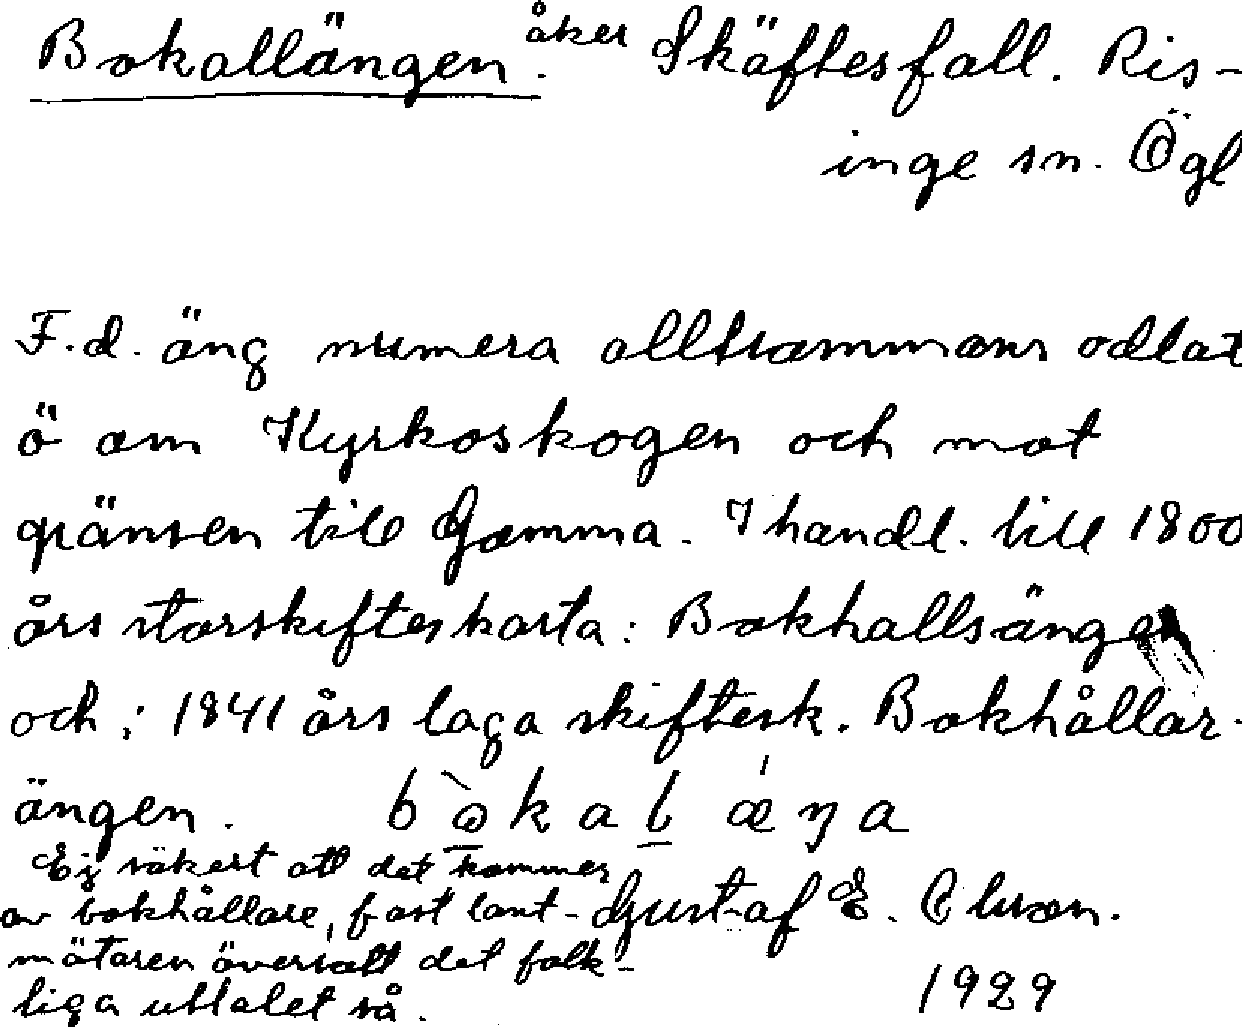 Bokallängen. åker Skäftesfall. Ris-
inge sn. Ögl
F.d. äng numera alltsammans odlat
ö om Kyrkoskogen och mot
gränsen till Gamma. I handl. till 1800
års storskifteskarta: Bokhallsängen
och i 1841 års laga skiftesk. Bokhållar-
ängen.
Ej säkert att det kommer
av bokhållare, fast lant-
mätaren översatt det folk-
liga uttalet så.
Gustaf E. Olsson.
1929